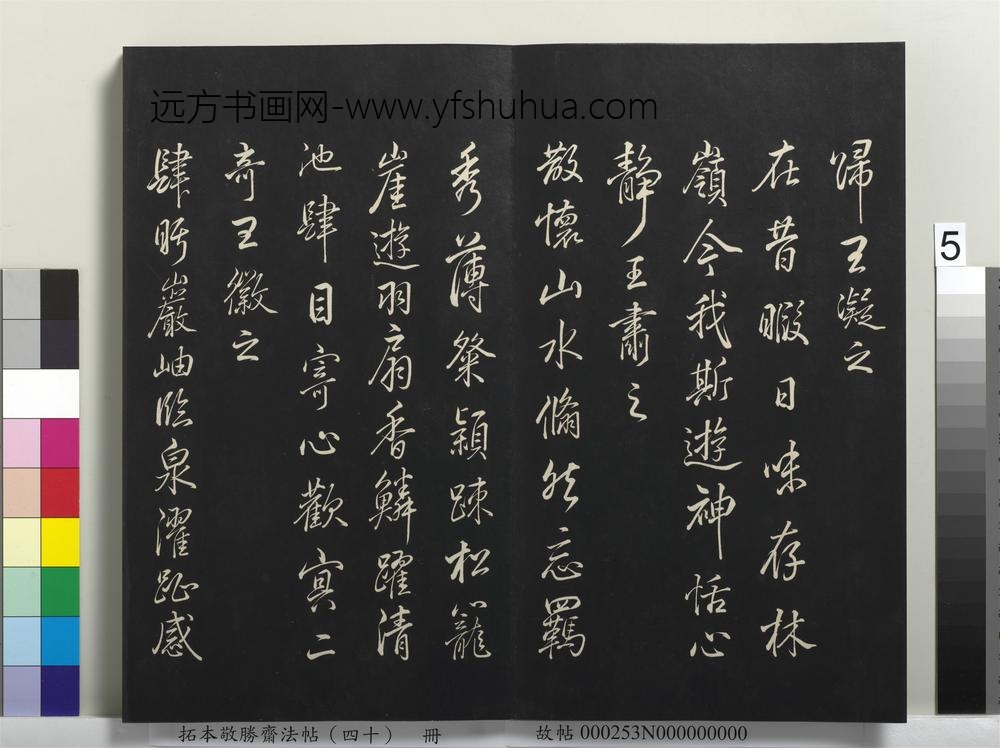 远方书画网-www.yfshuhua.com
歸王凝之
在昔暇日味存林
嶺今我斯遊神恬心
靜王肅之
散懷山水翛然忘羈
秀薄粲穎疎松籠
崖遊羽扇香鱗躍清
池肆目寄心歡寞二
奇王徽之
肆眄巖岫臨泉濯趾感
5
拓本敬勝齋法帖（四十） 冊
故帖 000253N000000000